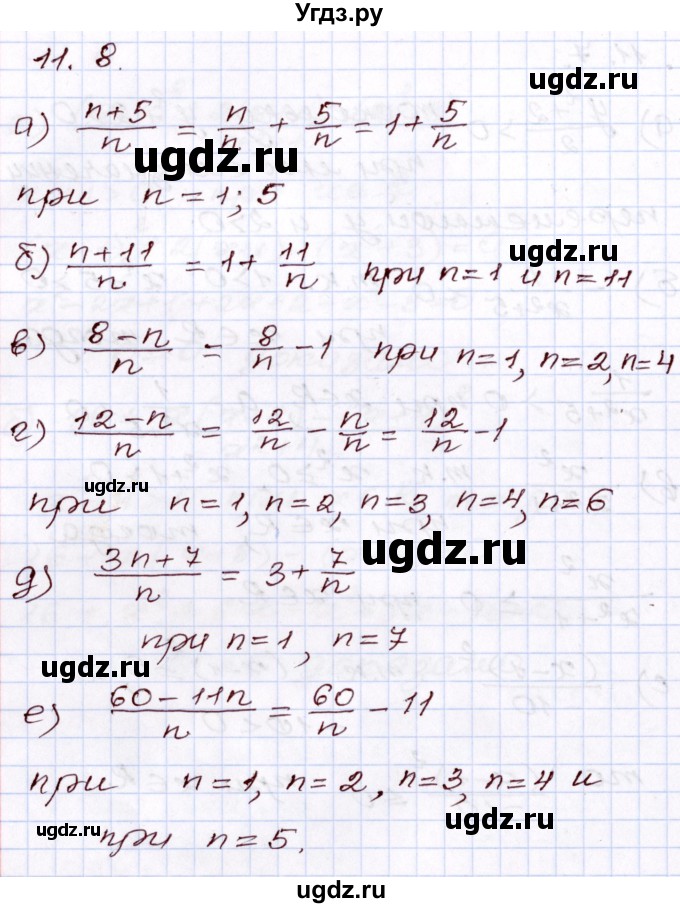 Угдз.ру
11. 8.
а) (n+5)/n = n/n + 5/n = 1 + 5/n
ugdz.ru
ugdz.ru
при n = 1; 5
ugdz.ru
б) (n+11)/n = 1 + 11/n при n=1 и n=11
ugdz.ru
в) (8-n)/n = 8/n - 1 при n=1, n=2, n=4
г) (12-n)/n = 12/n - n/n = 12/n - 1
ugdz.ru
при n=1, n=2, n=3, n=4, n=6
ugdz.ru
д) (3n+7)/n = 3 + 7/n
при n=1, n=7
ugdz.ru
е) (60-11n)/n = 60/n - 11
при n=1, n=2, n=3, n=4 и
ugdz.ru
ugdz.ru
при n=5.
ugdz.ru